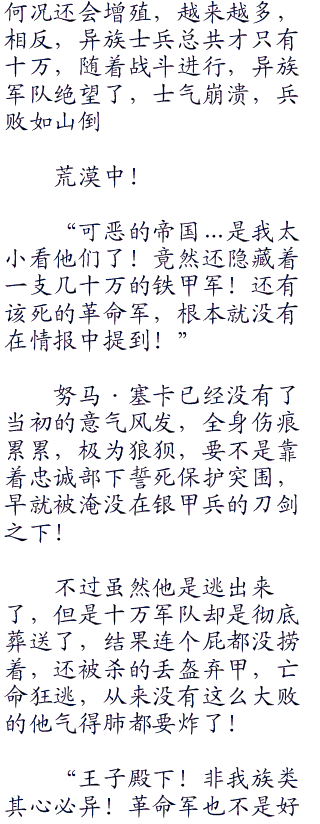 何况还会增殖，越来越多，
相反，异族士兵总共才只有
十万，随着战斗进行，异族
军队绝望了，士气崩溃，兵
败如山倒
荒漠中！
“可恶的帝国…是我太
小看他们了！竟然还隐藏着
一支几十万的铁甲军！还有
该死的革命军，根本就没有
在情报中提到！”
努马·塞卡已经没有了
当初的意气风发，全身伤痕
累累，极为狼狈，要不是靠
着忠诚部下誓死保护突围，
早就被淹没在银甲兵的刀剑
之下！
不过虽然他是逃出来
了，但是十万军队却是彻底
葬送了，结果连个屁都没捞
着，还被杀的丢盔弃甲，亡
命狂逃，从来没有这么大败
的他气得肺都要炸了！
“王子殿下！非我族类
其心必异！革命军也不是好